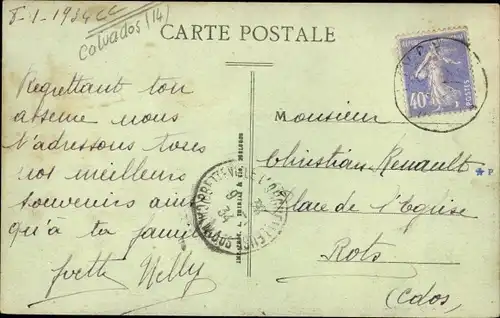 8-1-1934
Calvados (14)
CARTE POSTALE
40c
POSTES
Regrettant ton
absence nous
t'adressons tous
nos meilleurs
souvenirs ainsi
qu'à ta famille
Yvette Nelly
Monsieur
Christian Renault
Place de l'Eglise
Rots
(Cdos)